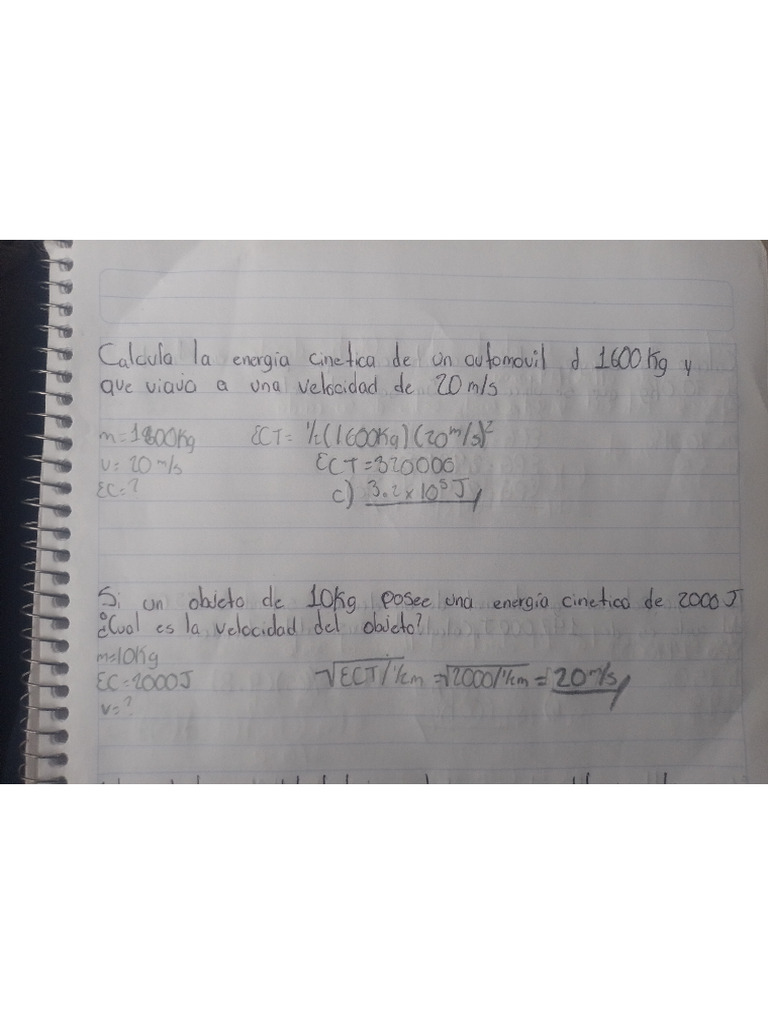 Calcula la energia cinetica de un automovil d 1600 Kg y
que viaja a una velocidad de 20 m/s
m=1600Kg ECT= ½(1600Kg)(20m/s)²
v= 20 m/s ECT=320000
EC=? c) 3.2 x 10⁵ J
Si un objeto de 10Kg posee una energía cinetica de 2000 J
¿Cual es la velocidad del objeto?
m=10Kg
EC=2000J √ECT/½m =√2000/½m = 20 m/s
v=?